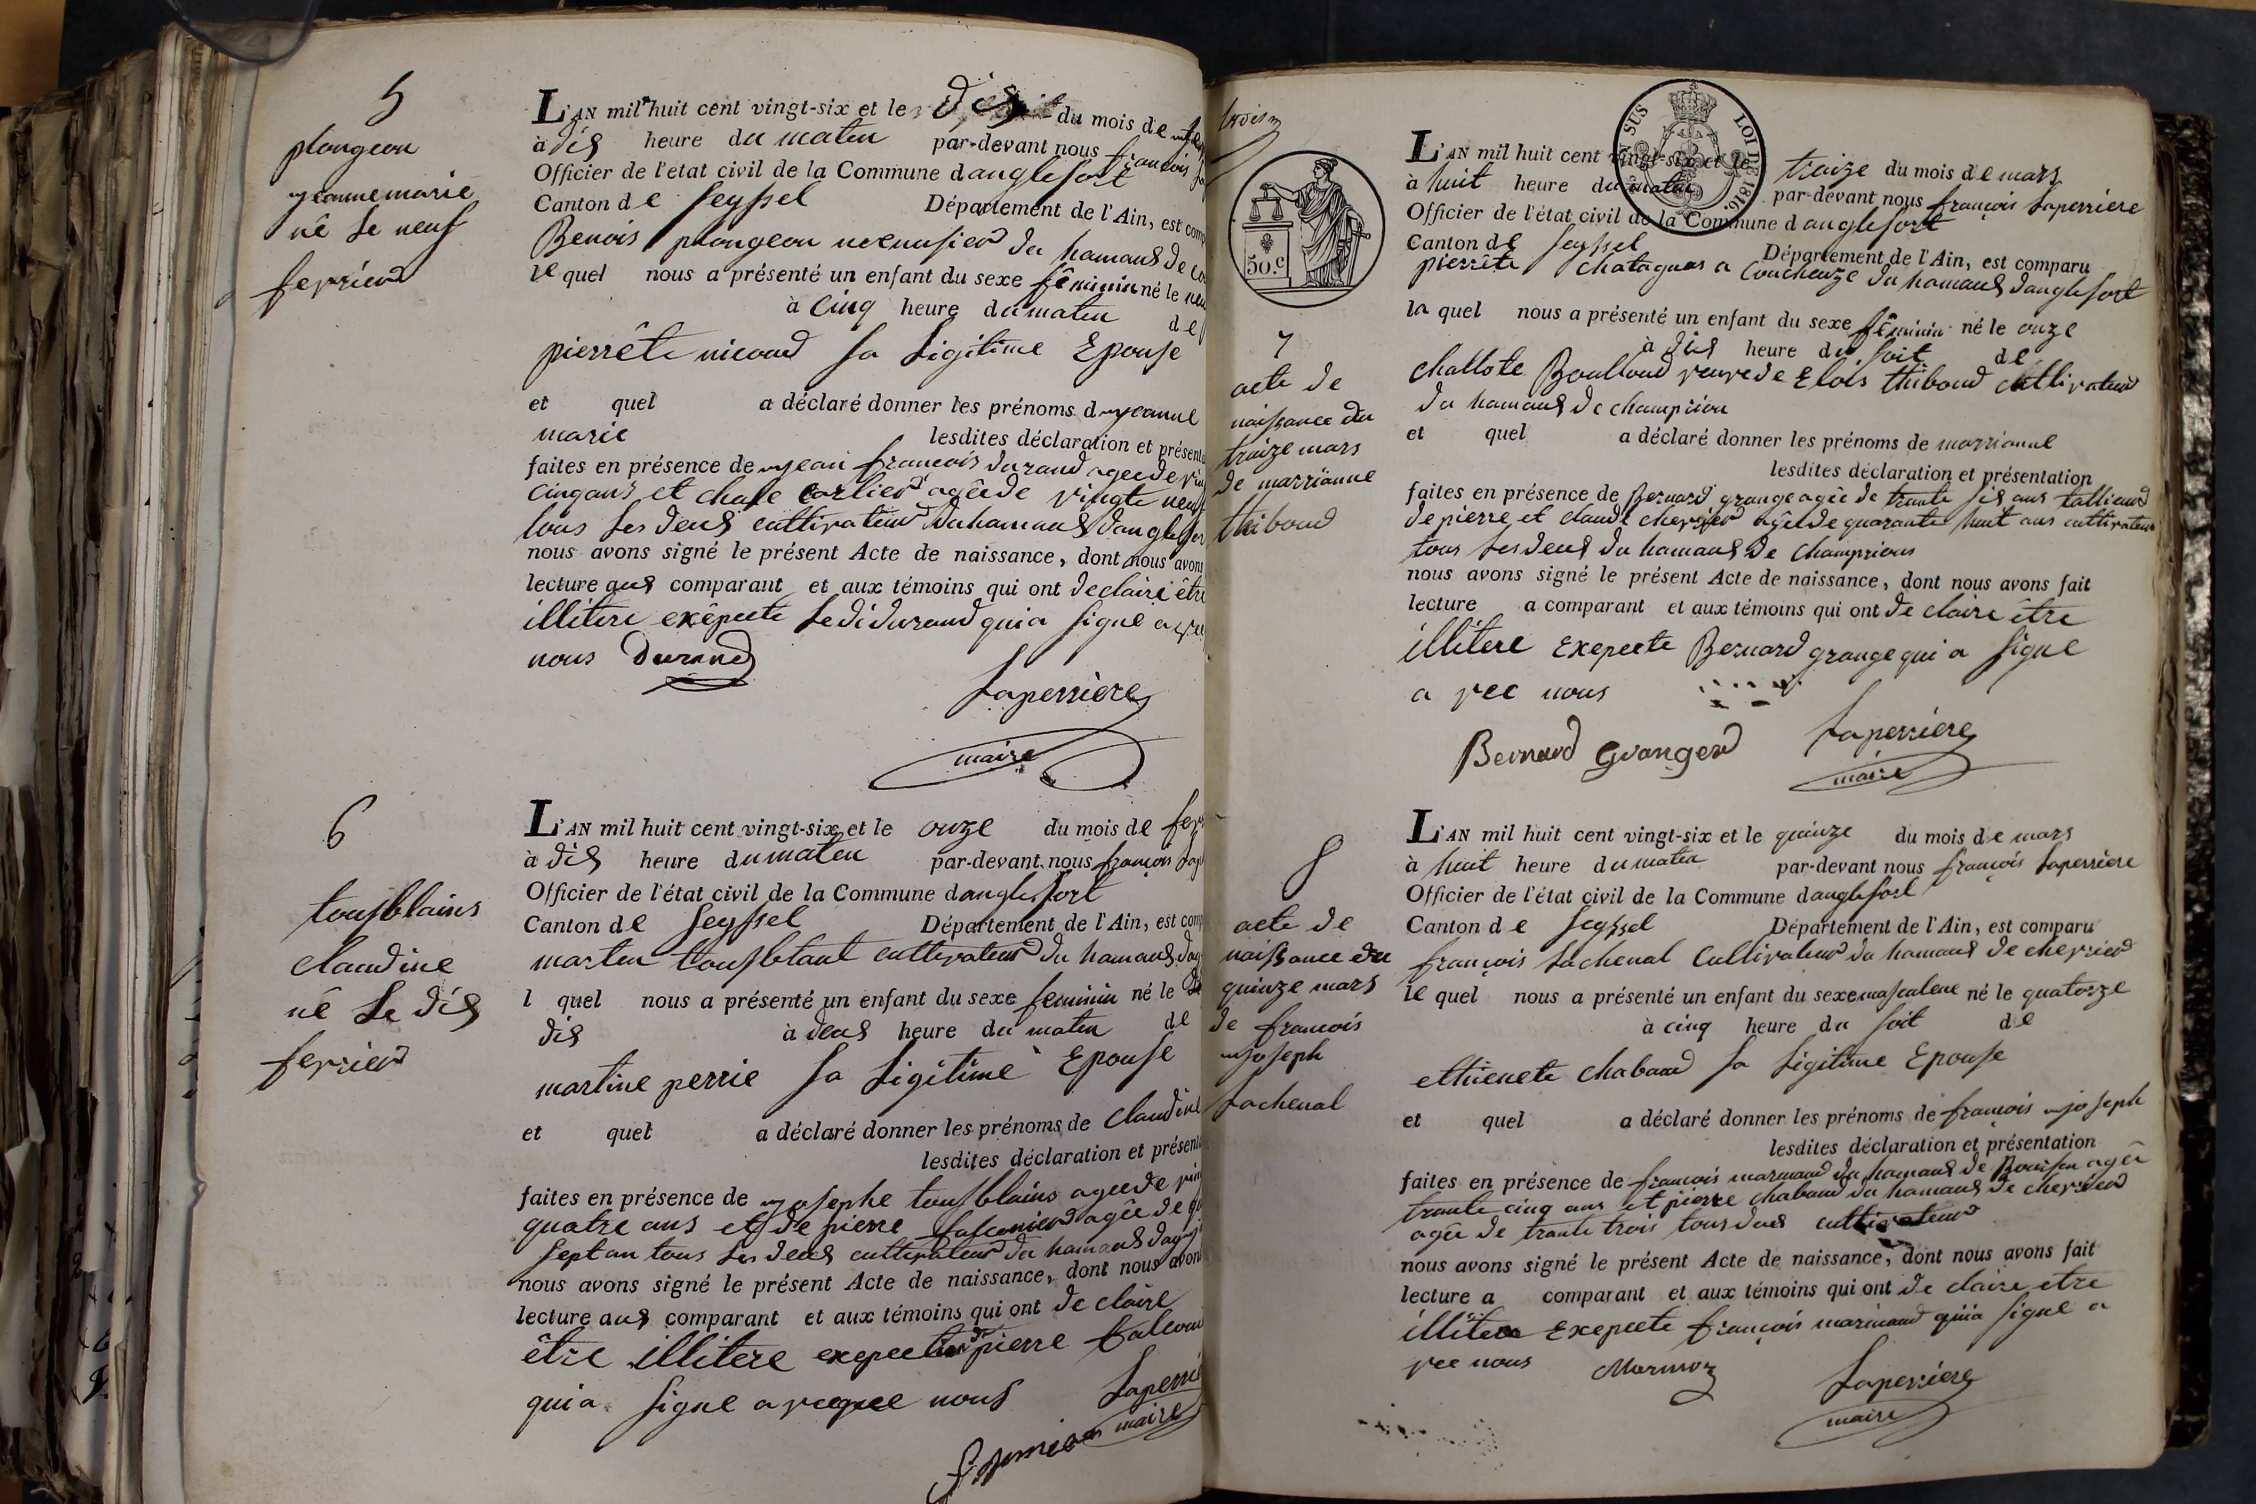 5
plongeon
jeanne marie
nê le neuf
fevrier
L'AN mil huit cent vingt-six et le dix du mois de
à dix heure du maten par-devant nous francois
Officier de l'etat civil de la Commune danglefort
Canton de Seyssel Département de l'Ain, est comp
Benois plongeon menusier du hamaux de
le quel nous a présenté un enfant du sexe fêminin né le neu
à cinq heure du maten de
pierrête nicoud sa Ligitime Epouse
et quel a déclaré donner les prénoms de jeanne
marie lesdites déclaration et présenta
faites en présence de jean francois durand ageede vin
cinq ans et charle carlier agêe de vingte neuf
tous les deux cultivateur du hamaux danglefor
nous avons signé le présent Acte de naissance, dont nous avons
lecture aux comparant et aux témoins qui ont declairé être
illitere exêpecte ledi durand quia signe avec
nous Durand
Laperriere
maire
6
tousblains
claudine
nê Le dix
fevrier
L'AN mil huit cent vingt-six et le onze du mois de fevr
à dix heure du maten par-devant nous françois Lap
Officier de l'état civil de la Commune danglefort
Canton de Seyssel Département de l'Ain, est comp
marten tousblant cultivateur du hamaux dag
l quel nous a présenté un enfant du sexe feminin né le
dix à deux heure du maten de
martine perrie sa Ligitime Epouse
et quel a déclaré donner les prénoms de claudine
lesdites déclaration et présent
faites en présence de josephe tousblains ageede vin
quatre ans et de pierre falconier agêe de
sept an tous les deux cultivateur du hamaux dag
nous avons signé le présent Acte de naissance, dont nous avons
lecture aux comparant et aux témoins qui ont de claire
être illitere exepecte pierre falcon
quia signe avecque nous Laperri
maire
trois
SUS LOI DE 1816.
50.c
7
acte de
naissance du
traize mars
de marrianne
thiboud
L'AN mil huit cent vingt-six et le traize du mois de mars
à huit heure du maten par-devant nous françois Laperriere
Officier de l'état civil de la Commune d anglefort
Canton de Seyssel Département de l'Ain, est comparu
pierrête chatagnas a coucheuze du hamaux danglefort
la quel nous a présenté un enfant du sexe fêminin né le onze
à dix heure du soit de
challote Boulloud veuve de Elois thiboud cultivateur
du hamaux de champrion
et quel a déclaré donner les prénoms de marrianne
lesdites déclaration et présentation
faites en présence de Bernard grange agêe de trante six ans tallieur
de pierre et claude chervier agêe de quarante huit ans cultivateur
tous les deux du hamaux de champrions
nous avons signé le présent Acte de naissance, dont nous avons fait
lecture a comparant et aux témoins qui ont de claire être
illitere exepecte Bernard grange qui a signe
a vec nous
Bernard Granger Laperriere
maire
8
acte de
naissance du
quinze mars
de francois
joseph
Lachenal
L'AN mil huit cent vingt-six et le quinze du mois de mars
à huit heure du maten par-devant nous françois Laperriere
Officier de l'état civil de la Commune danglefort
Canton de Seyssel Département de l'Ain, est comparu
françois Lachenal cultivateur du hamaux de chevrier
le quel nous a présenté un enfant du sexe masculene né le quatorze
à cinq heure du soit de
ethienete chabaud sa Ligitime Epouse
et quel a déclaré donner les prénoms de françois joseph
lesdites déclaration et présentation
faites en présence de francois marmaud du hamaux de agê
trante cinq ans et pierre chabaud du hamaux de chevrier
agêe de trante trois tous deux cultivateur
nous avons signé le présent Acte de naissance, dont nous avons fait
lecture a comparant et aux témoins qui ont de claire etre
illitere exepecte françois marmaud quia signe a
vec nous Marmoz Laperriere
maire